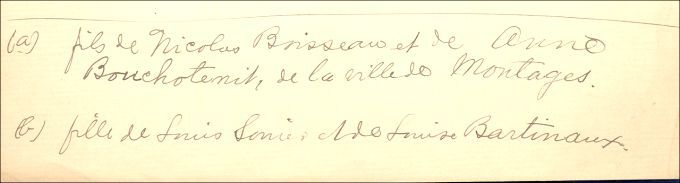 (a) fils de Nicolas Boisseau et de Anne
Bouchotenit, de la ville de Montages.
(b) fille de Louis et de Louise Bartinaux.